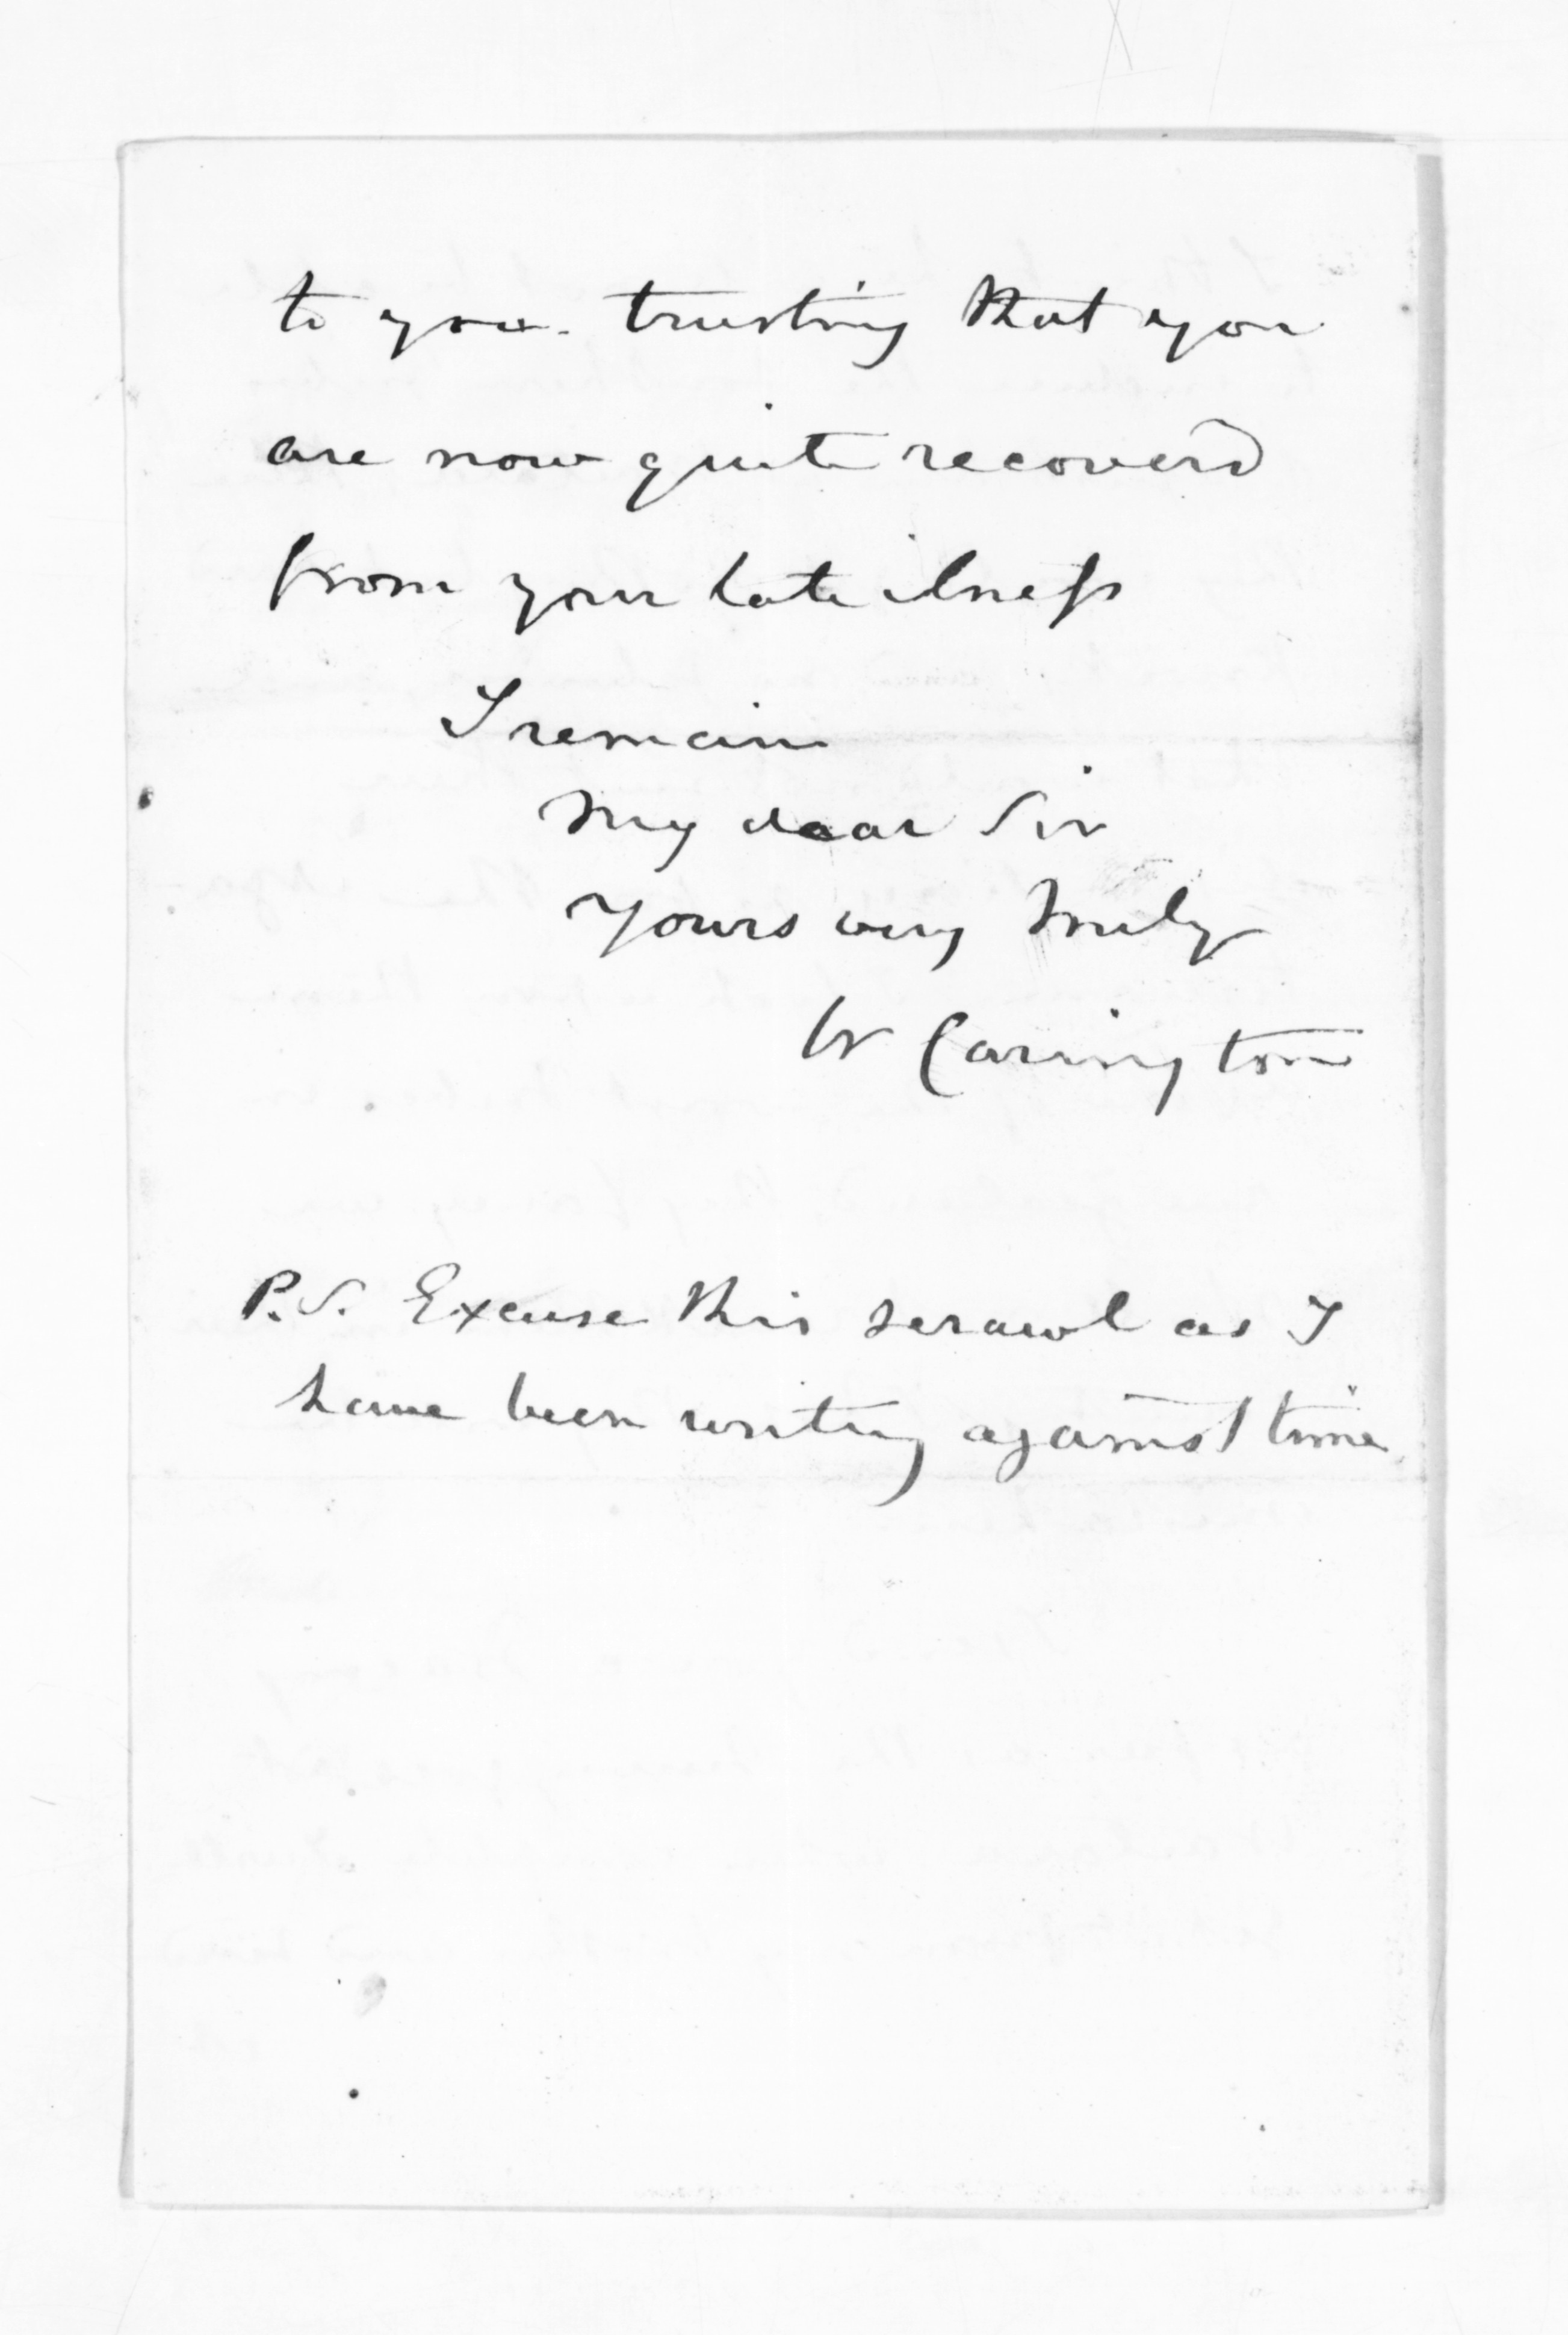 to you. trusting that you
are now quite recoverd
from your late ilness
I remain
My dear Sir
Yours very truly
W Carington
P.S. Excuse this scrawl as I
have been writing against time